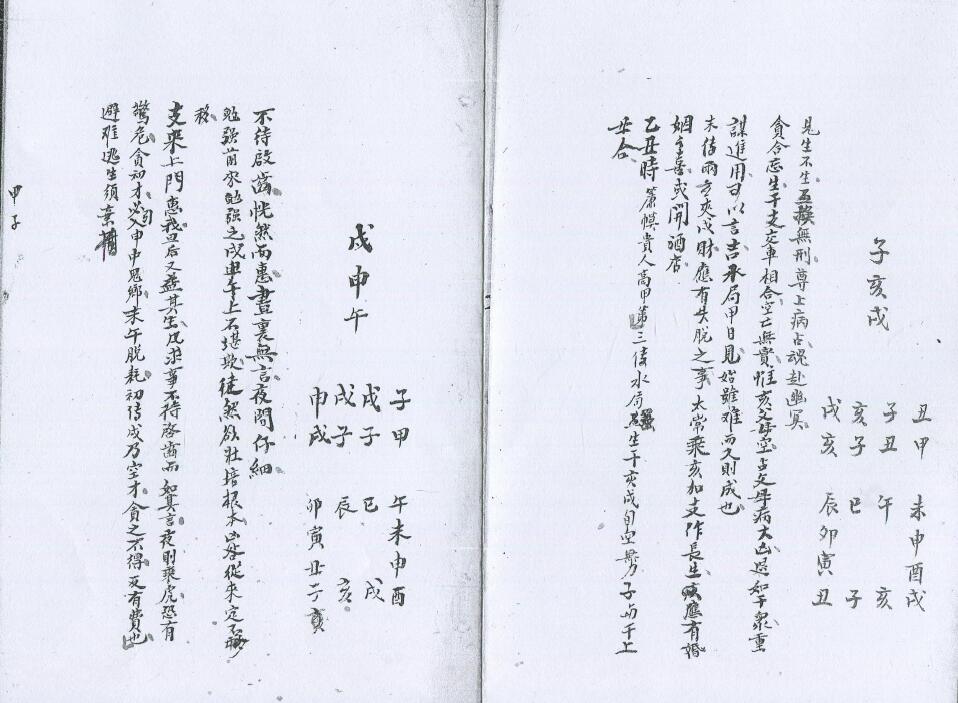 子亥戌
丑甲 未申酉戌
子丑 午 亥
亥子 巳 子
戌亥 辰卯寅丑
見生不生 無刑尊上病占魂赴幽冥
貪合忘生干支交車相合空亡無賞惟亥父母空占父母病大凶退如干衆重
謀進用可以言吉承局甲日見始雖难而又則成也
未傳兩方夾戌財應有失脱之事太常乘亥加支作長生 應有婚
姻重喜或開酒店
乙丑時 簾幙貴人高甲第三傳水局 生干亥戌旬空 子与干上
丑合
戌申午
子甲 午未申酉
戌子 巳 戌
戌子 辰 亥
申戌 卯寅丑子
不待啟齒恍然而惠晝裏無言夜間仔細
勉强前求勉强之戌 午上不堪欺徒然欲壯培根本凶咎從来定
移
支来上門惠我旦后又益其生凡求事不待啓齒而如其言夜則乘虎恐有
驚危貪初才必 申申鬼鄉末午脱耗初傳戌乃空才貪之不得反有費也
避难逃生須棄旧
甲子